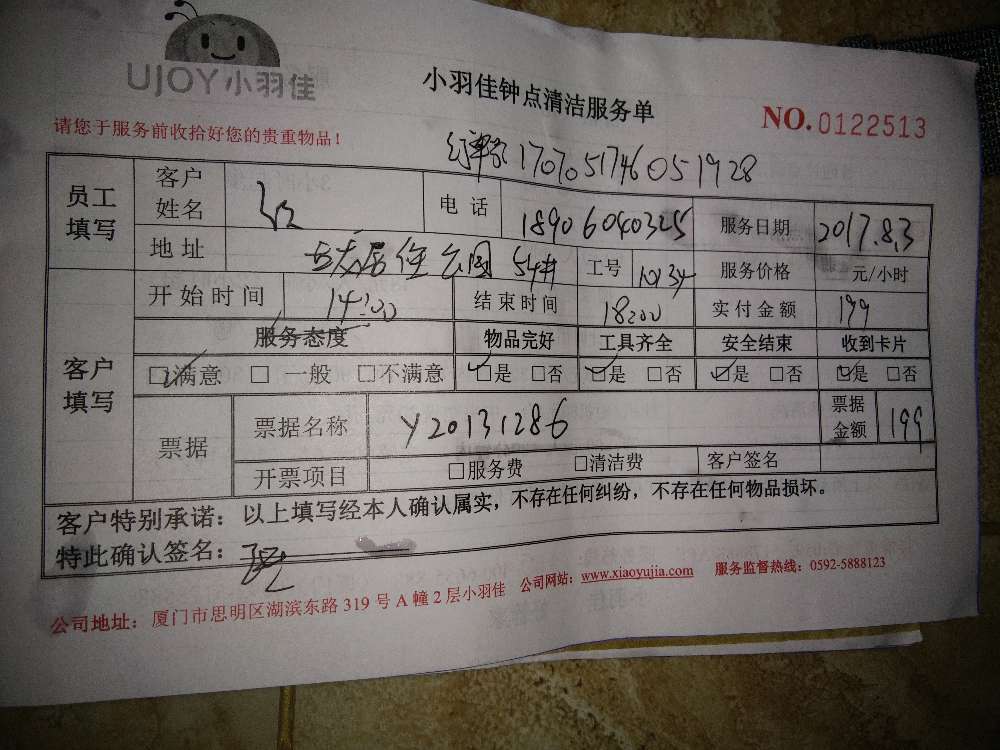 UJOY小羽佳
小羽佳钟点清洁服务单
NO.0122513
请您于服务前收拾好您的贵重物品！
订单号 170705174605 1928
员工填写 客户姓名 电话 18906040325 服务日期 2017.8.3
地址 居住公园54# 工号 10134 服务价格 元/小时
客户填写 开始时间 14:00 结束时间 18:00 实付金额 199
服务态度 物品完好 工具齐全 安全结束 收到卡片
☑满意 □一般 □不满意 ☑是 □否 ☑是 □否 ☑是 □否 ☑是 □否
票据 票据名称 Y20131286 票据金额 199
开票项目 □服务费 □清洁费 客户签名
客户特别承诺：以上填写经本人确认属实，不存在任何纠纷，不存在任何物品损坏。
特此确认签名：
公司地址：厦门市思明区湖滨东路319号A幢2层小羽佳 公司网站：www.xiaoyujia.com 服务监督热线：0592-5888123